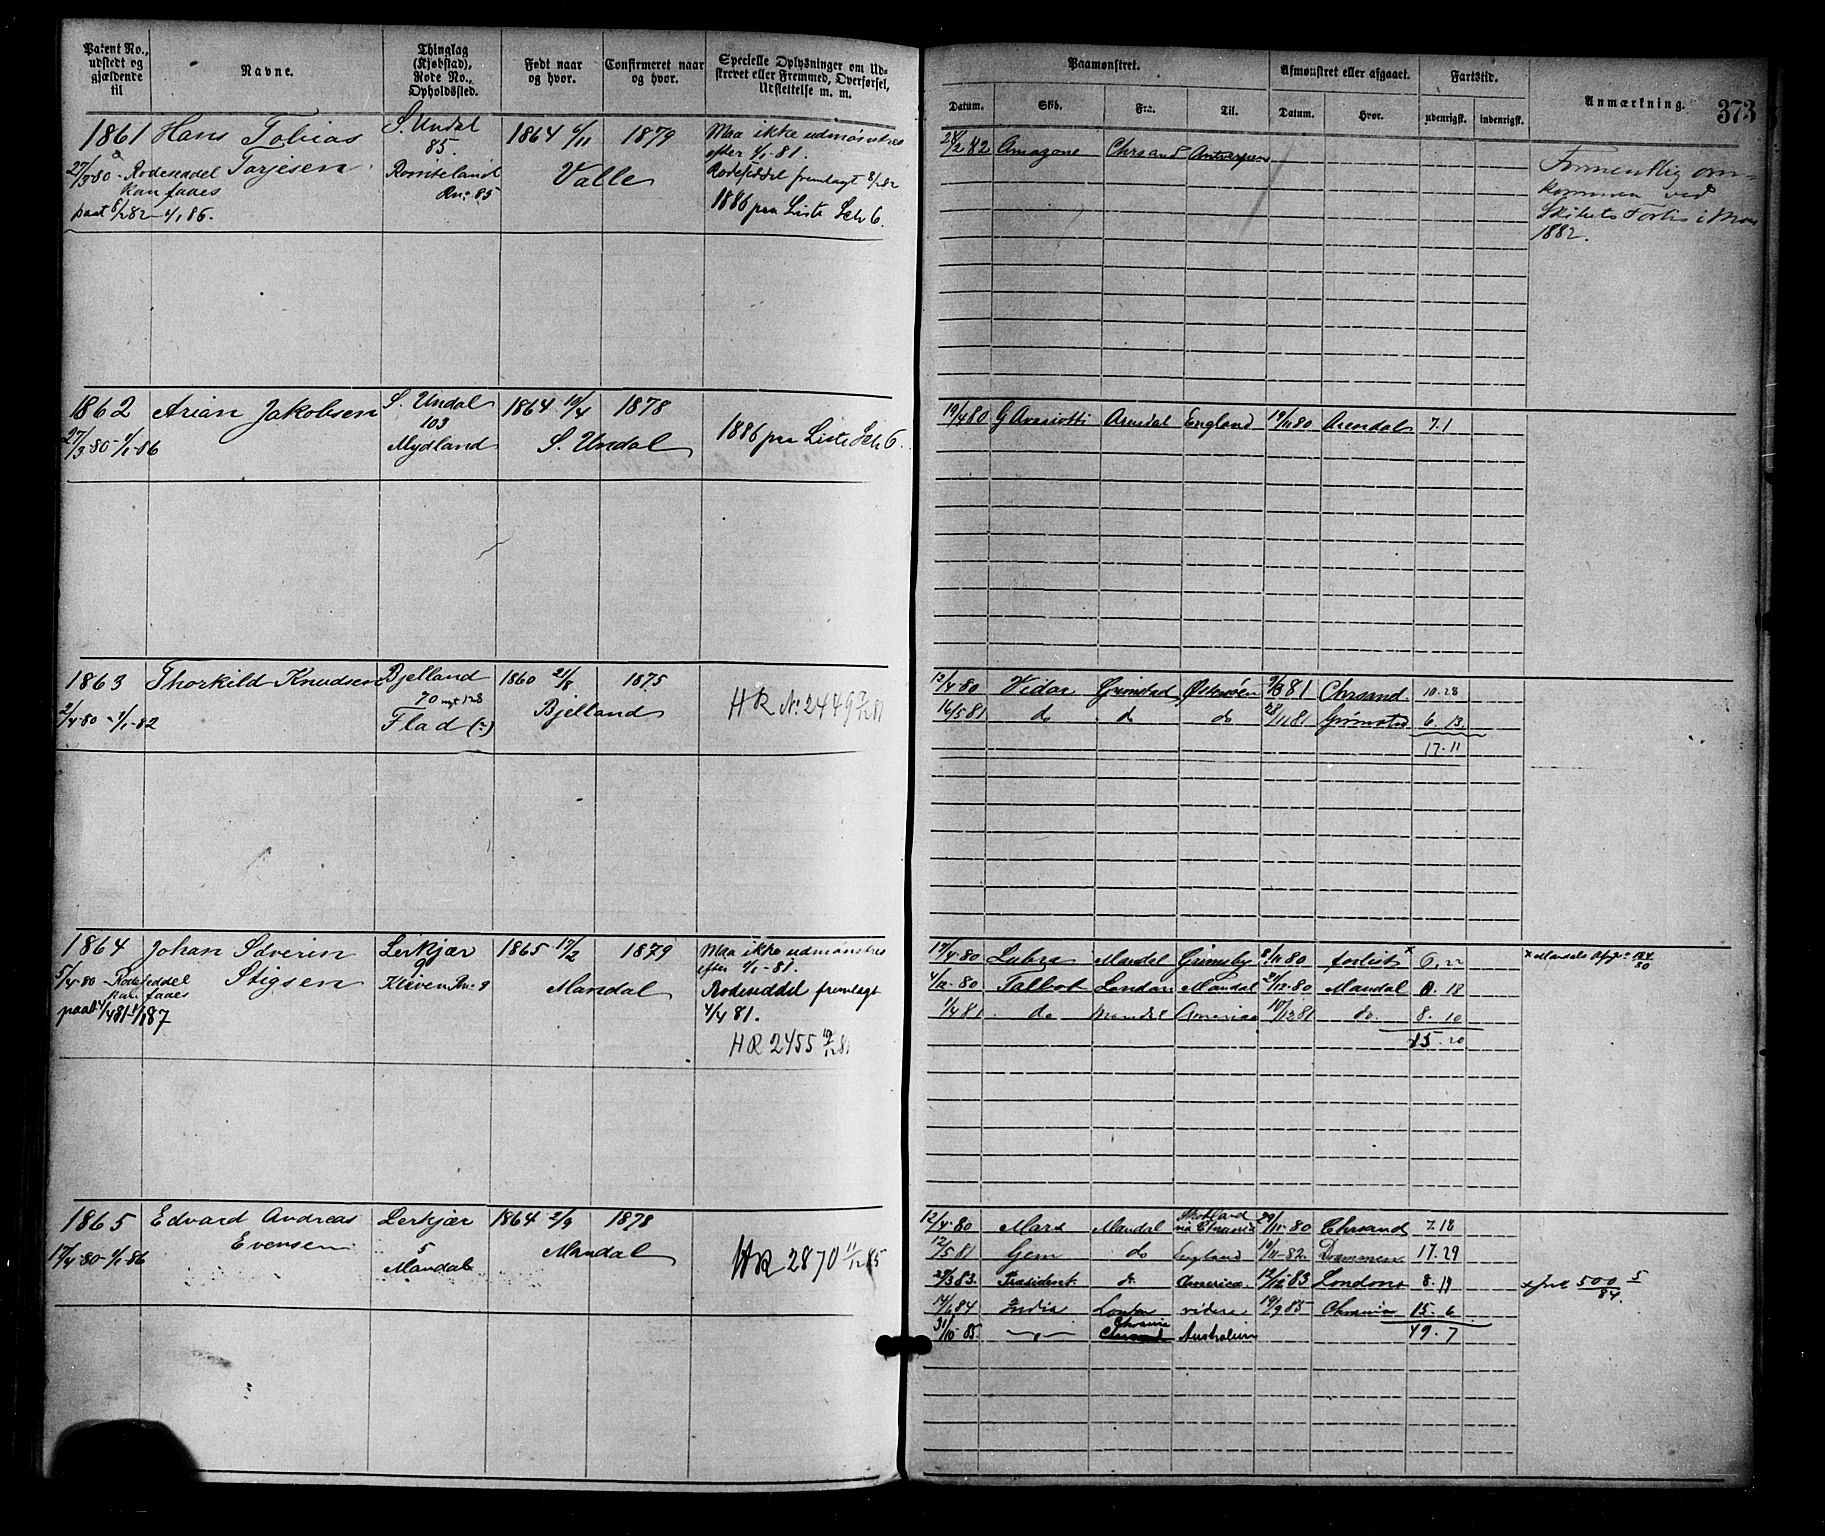 Patent No., udstedt og gjældende til
Navne.
Thinglag (Kjøbstad), Rode No., Opholdssted.
Født naar og hvor.
Confirmeret naar og hvor.
Specielle Oplysninger om Udskrevet eller Fremmed, Overførsel, Udslettelse m. m.
Paamønstret.
Datum. Skib. Fra. Til.
Afmønstret eller afgaaet.
Datum. Hvor.
Fartstid.
udenrigsk. indenrigsk.
Anmærkning.
373
1861 Hans Tobias S. Undal 1864 4/11 1879 Maa ikke udmønstres
85. efter 1/1-81.
27/3-80 - Rodeseddel Tarjesen Valle Rodeseddel fremlagt 8/2 82
kan faaes Rno: 85 1886 paa Liste Litr 6.
paat 8/2 82 - 1/1 86.
24/2 82 Amazone Chrsand Antwerpen
Formentlig om-
kommen ved
Skibets Forlis i
1882.
1862 Arian Jakobsen S. Undal 1864 10/4 1878
103
27/3-80 - 1/1-86 Mydland S. Undal 1886 paa Liste Litr 6.
19/4 80 Arendal England 19/11 80 Arendal 7.1
1863 Thorkild Knudsen Bjelland 1860 21/8 1875
70
2/4-80 - 1/1-82 Flad (?) Bjelland HR No 2449
12/4-80 Vidar Grimstad Østersøen 9/3 81 Chrsand 10.28
16/5 81 do do do 28/11 81 Grimstad 6. 13.
17.11
1864 Johan Severin Lerkjær 1865 17/2 1879 Maa ikke udmønstres
9 efter 1/1-81.
5/4-80 - Rodeseddel Stigsen Kleven Rno: 9 Mandal Rodeseddel fremlagt
kan faaes 4/4 81.
paat 1/4 81 - 1/1 87
HR 2455
17/4-80 Mandal Grimsby 80 forlist x 6. 22
Talbot London Mandal 21/12-80 Mandal 0. 18
1/4 81 do Mandal America 17/12 81 do. 8. 10
15. 20
1865 Edvard Andreas Lerkjær 1864 2/9 1878
Evensen 5
17/4-80 - 1/1-86 Mandal Mandal HR 2870 11/12 85
12/4-80 Mandal Skotland via Chrania 20/11-80 Chrsand 7.18
12/5 81 Gem do England 10/11-82. Drammen 17.29
29/3 83. Præsident. do America. 12/12-83 London x 8. 19
x 500 5/84.
14/1 84 India London videre 19/9 85 Chrania 15. 6
49. 7
31/10-85 Chrania Australien